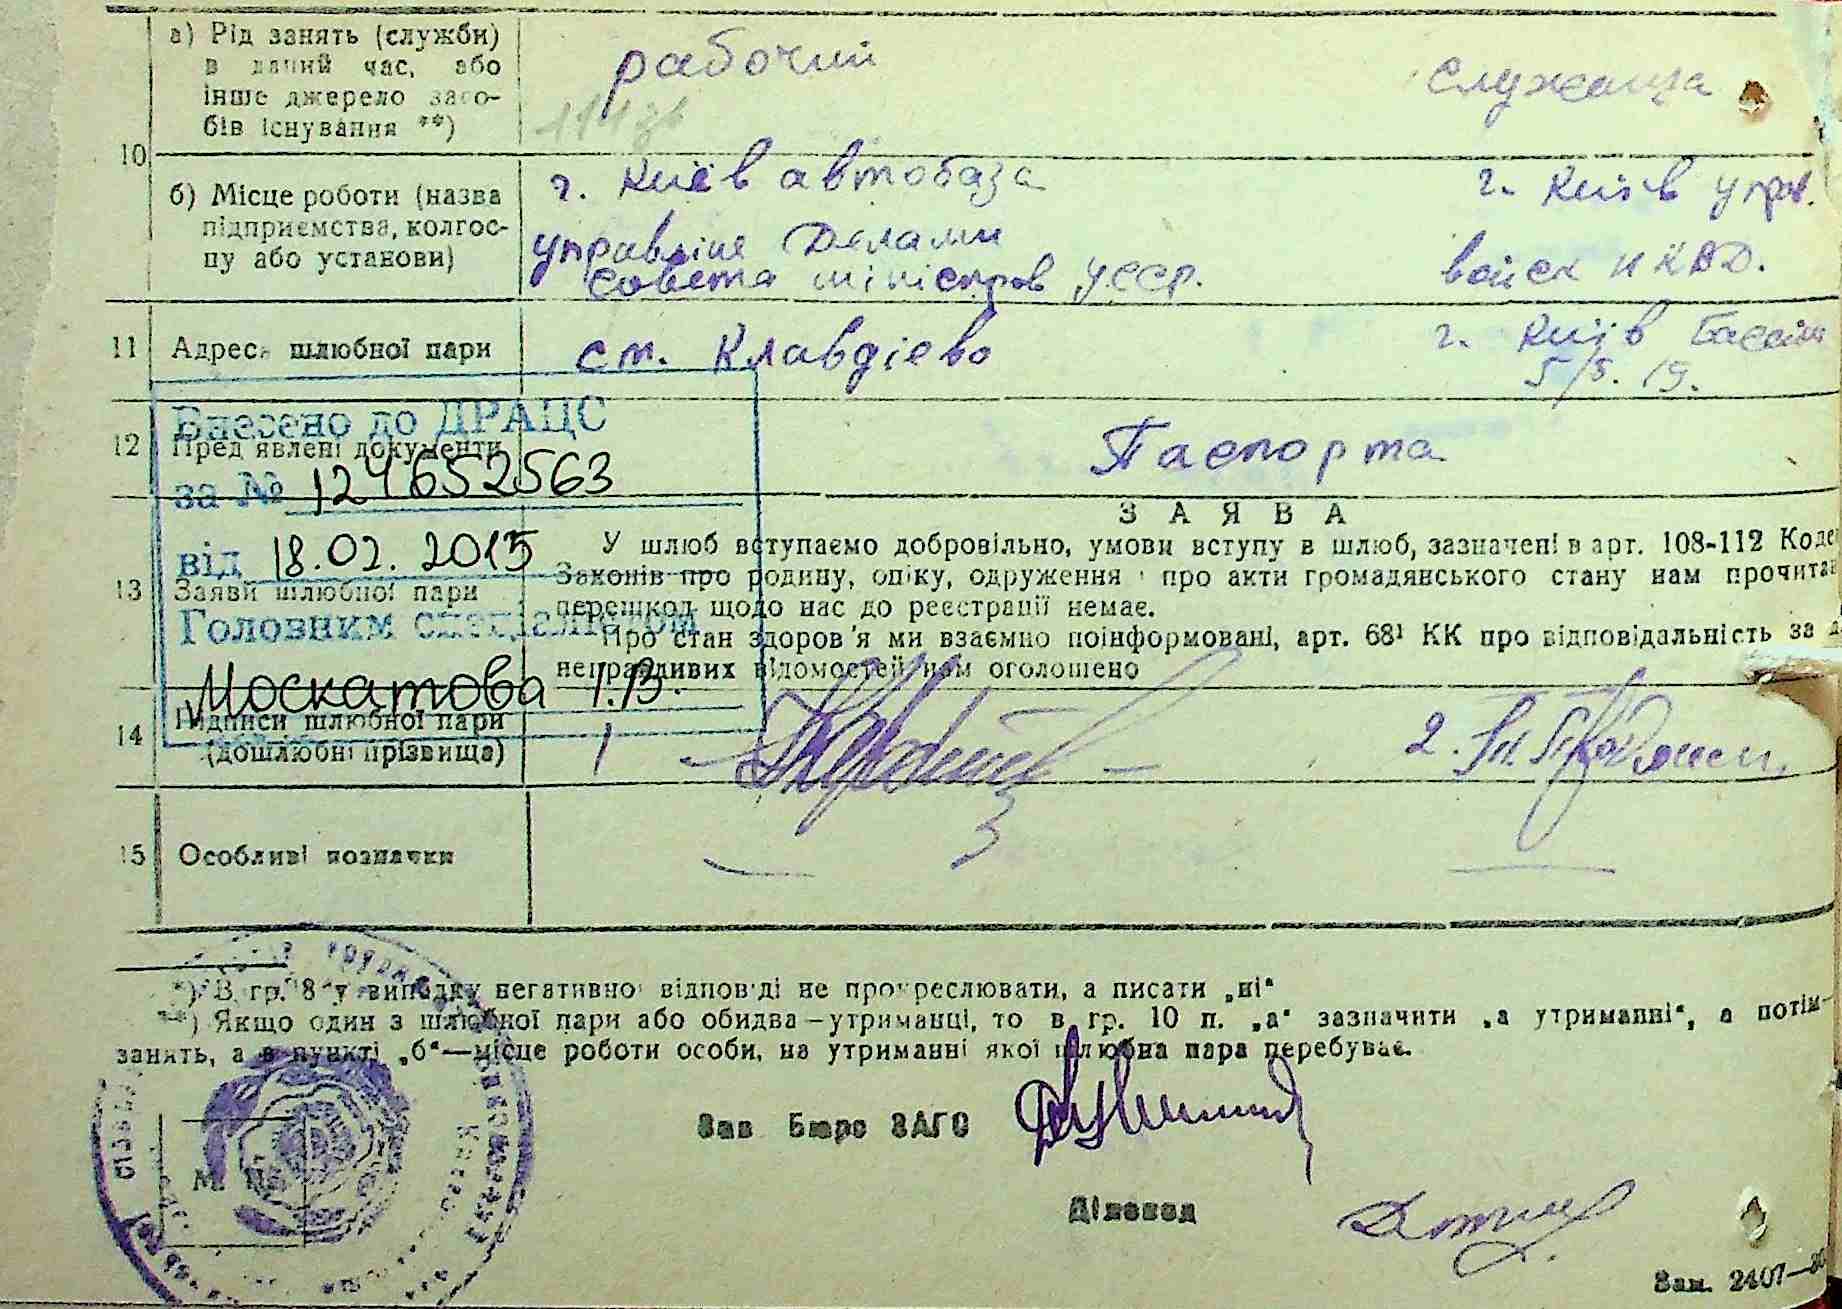 а) Рід занять (служби)
в даний час, або
інше джерело засо-
бів існування **)
рабочий
служаща
10
б) Місце роботи (назва
підприємства, колгос-
пу або установи)
г. Київ автобаза
управління Делами
Совета міністров УССР.
г. Київ упр.
войск НКВД.
11 Адреса шлюбної пари
ст. Клавдієво
г. Київ
5/5. 19.
12 Пред'явлені документи
Паспорта
Внесено до ДРАЦС
за № 124652563
від 18.02. 2015
Головним спеціалістом
Москатова І.В.
ЗАЯВА
13 Заяви шлюбної пари
У шлюб вступаємо добровільно, умови вступу в шлюб, зазначені в арт. 108-112 Коде
Законів про родину, опіку, одруження і про акти громадянського стану нам прочитан
перешкод щодо нас до реєстрації немає.
Про стан здоров'я ми взаємно поінформовані, арт. 68¹ КК про відповідальність за д
неправдивих відомостей нам оголошено
14 Підписи шлюбної пари
(дошлюбні прізвища)
1
2.
15 Особливі позначки
*) В гр. 8 у випадку негативної відповіді не прокреслювати, а писати „ні“
**) Якщо один з шлюбної пари або обидва—утриманці, то в гр. 10 п. „а“ зазначити „а утриманні“, а потім
занять, а в пункті „б“—місце роботи особи, на утриманні якої шлюбна пара перебуває.
Зав Бюро ЗАГС
Діловод
М. П.
Зам. 2407—